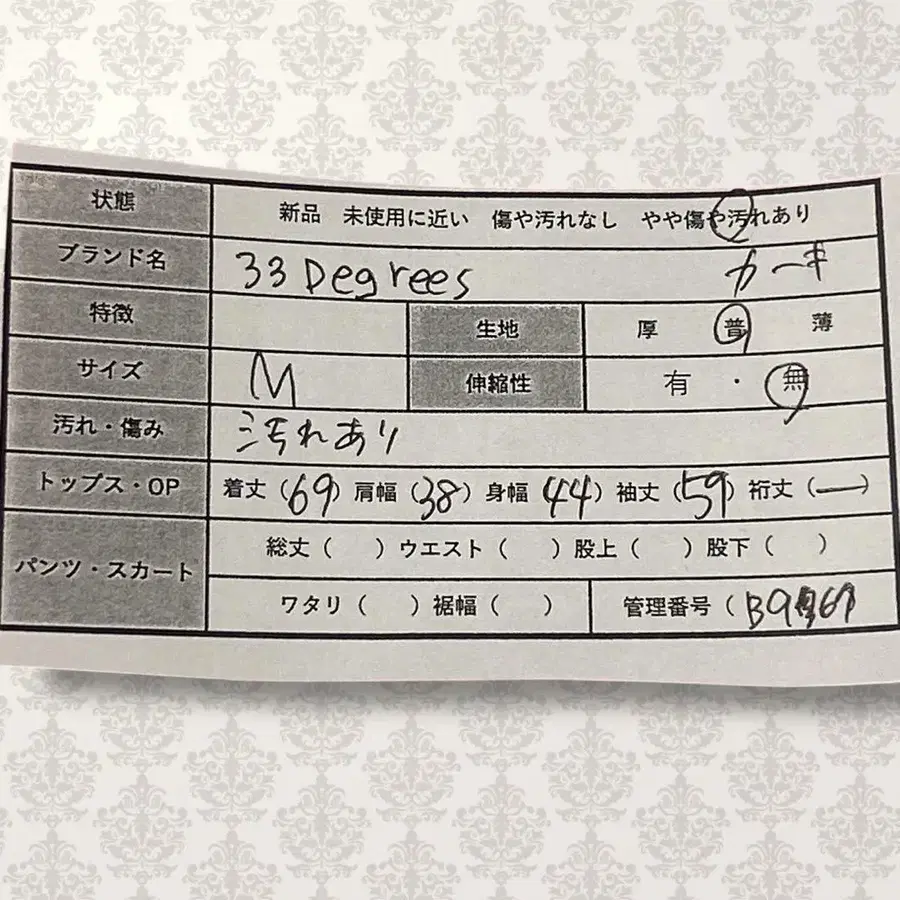 状態 新品 未使用に近い 傷や汚れなし やや傷や汚れあり
ブランド名 33 Degrees カーキ
特徴 生地 厚 普 薄
サイズ M 伸縮性 有 ・ 無
汚れ・傷み 汚れあり
トップス・OP 着丈(69) 肩幅(38) 身幅 44) 袖丈(59) 裄丈(ー)
パンツ・スカート 総丈( ) ウエスト( ) 股上( ) 股下( )
ワタリ( ) 裾幅( ) 管理番号(